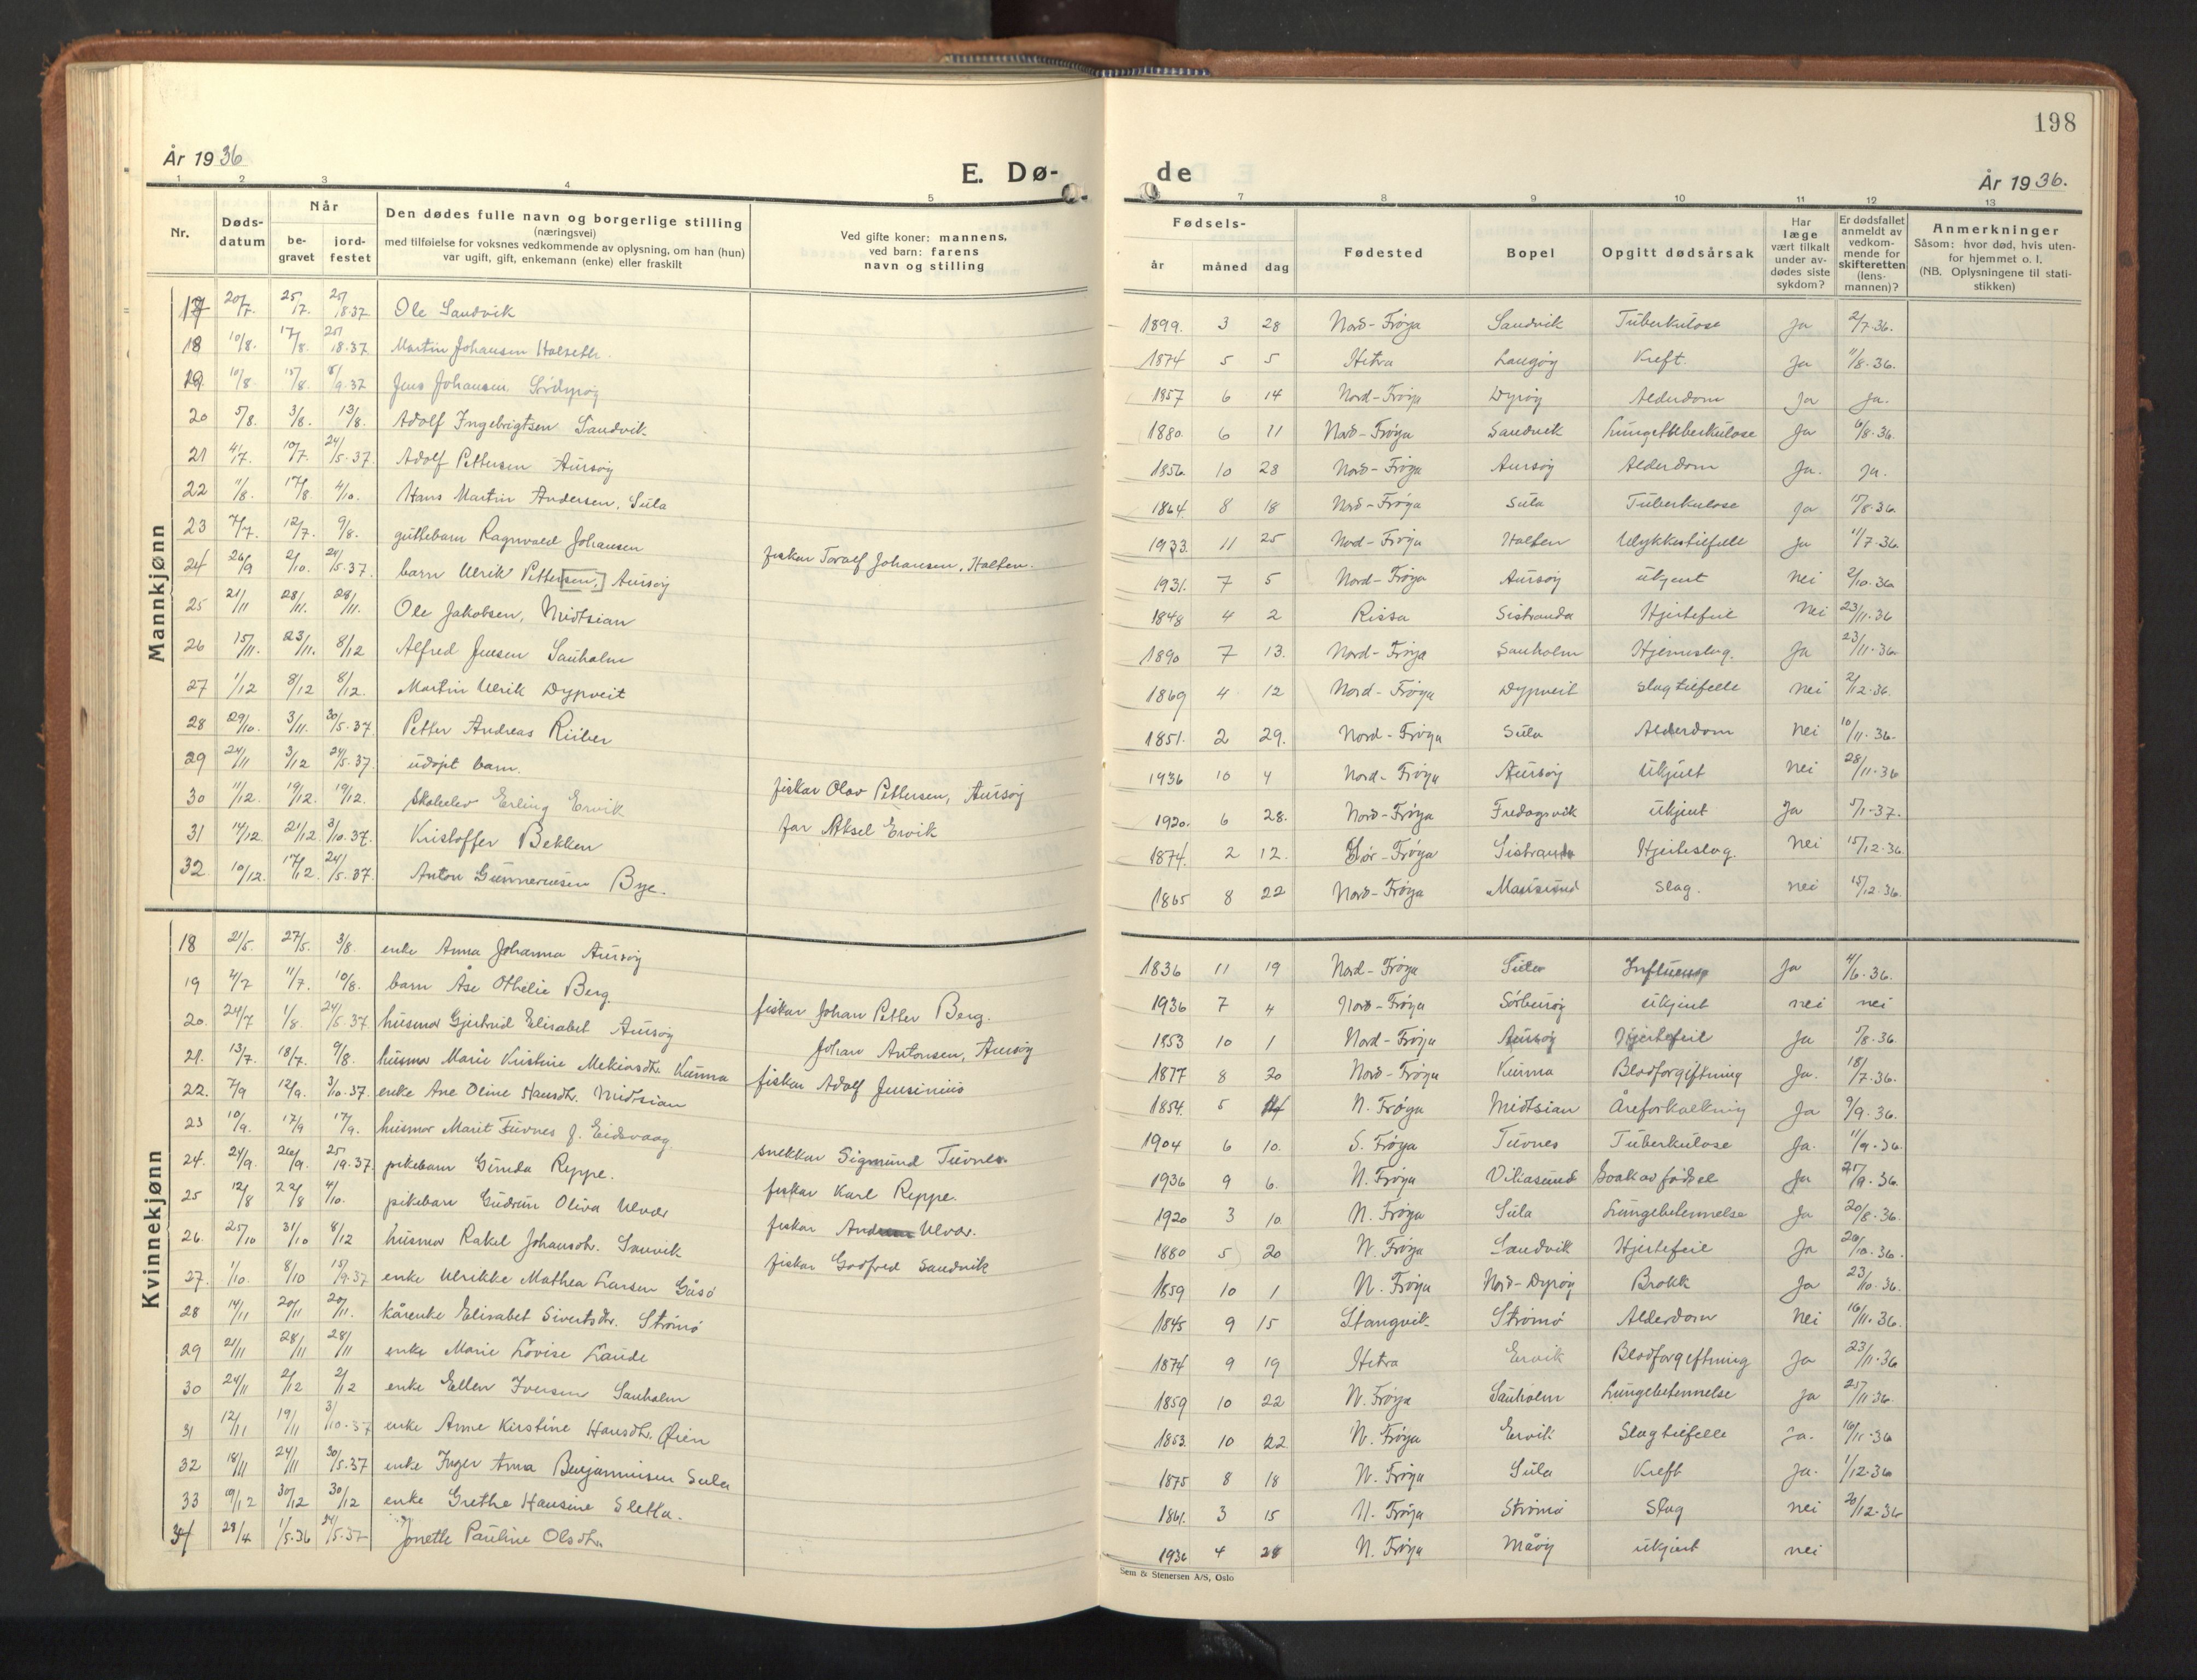 198
År 1936
E. Dø-
de
År 1936.
1 2 3 4 5
7 8 9 10 11 12 13
Nr.
Døds-
datum
Når
be-
gravet
jord-
festet
Den dødes fulle navn og borgerlige stilling
(næringsvei)
med tilføielse for voksnes vedkommende av oplysning, om han (hun)
var ugift, gift, enkemann (enke) eller fraskilt
Ved gifte koner: mannens,
ved barn: farens
navn og stilling
Fødsels-
år måned dag
Fødested
Bopel
Opgitt dødsårsak
Har
læge
vært tilkalt
under av-
dødes siste
sykdom?
Er dødsfallet
anmeldt av
vedkom-
mende for
skifteretten
(lens-
mannen)?
Anmerkninger
Såsom: hvor død, hvis uten-
for hjemmet o. l.
(NB. Oplysningene til stati-
stikken)
Mannkjønn
17 20/7. 25/7. 25/8.37 Ole Sandvik 1899. 3 28 Nord-Frøya Sandvik Tuberkulose Ja 2/7.36.
18 10/8. 17/8. Martin Johansen Halseth. 1874 5 5 Hitra Langøy Kreft. Ja 11/8.36.
19 10/8 15/8. Jens Johansen 1857 6 14 Nord-Frøya Dyrøy Alderdom Ja Ja.
20 5/8. 3/8. 13/8. Adolf Ingebrigtsen Sandvik. 1880. 6 11 Nord-Frøya Sandvik Lungetuberkulose Ja 6/8.36.
21 4/7. 10/7. 24/5.37. Adolf Pettersen Aursøy 1856. 10 28 Nord-Frøya Aursøy Alderdom Ja. Ja.
22 11/8. 17/8 4/10. Hans Martin Andersen, Sula 1864. 8 18 Nord-Frøya Sula Tuberkulose Ja 17/8.36.
23 7/7. 12/7. 9/8. guttebarn Ragnvald Johansen fisker Toralf Johansen, Halten. 1933. 11 25 Nord-Frøya Halten Ulykkestilfelle Ja 11/7.36.
24 26/9 2/10. 24/5.37. barn Ulrik Petter[sen,] Aursøy 1931. 7 5 Nord-Frøya Aursøy ukjent nei 2/10.36
25 21/11 28/11. 28/11. Ole Jakobsen, Midtsian 1848 4 2 Rissa Sistranda Hjertefeil Nei 23/11.36
26 15/11. 23/11. 8/12 Alfred Jensen Sauholm 1890 7 13. Nord-Frøya Sauholm Hjerneslag. Ja 23/11.36
27 1/12 8/12 8/12. Martin Ulrik Dypveit 1869 4 12 Nord-Frøya Dypveit slagtilfelle nei 2/12.36.
28 29/10. 3/11. 30/5.37 Petter Andreas Riiber 1851. 2 29. Nord-Frøya Sula Alderdom nei 10/11.36.
29 24/11 3/12 24/5.37. udøpt barn. fisker Olav Pettersen, Aursøy 1936 10 4 Nord-Frøya Aursøy Ukjent nei 28/11.36
30 11/12. 19/12. 19/12. Skoleelev Erling Ervik far Aksel Ervik 1920. 6 28. Nord-Frøya Fredagsvik ukjent Ja 5/1-37.
31 14/12. 21/12. 3/10.37. Kristoffer Bekken 1874. 2 12. Sør-Frøya Sistranda Hjerteslag. nei 15/12.36
32 10/12. 17/12. 24/5.37. Anton Gunnerusen Bye. 1865 8 22 Nord-Frøya Mausund slag. nei 15/12.36.
Kvinnekjønn
18 21/5. 27/5. 3/8. enke Anna Johanna Aursøy 1836 11 19 Nord-Frøya Sula Influensa Ja 4/6.36.
19 4/7 11/7. 10/8. barn Åse Othelie Berg fisker Johan Petter Berg. 1936 7 4 Nord-Frøya Sørburøy ukjent nei nei
20. 24/7 1/8. 24/5.37. husmor Gjertrud Elisabet Aursøy Johan Antonsen, Aursøy 1853 10 1 Nord-Frøya Aursøy Hjertefeil Ja 7/8.36.
21. 13/7. 18/7. 9/8. husmor Marie Kristine Mekiasdtr. Kunna fisker Adolf Jensinius 1877 8 20 Nord-Frøya Kunna Blodforgiftning Ja. 18/7.36.
22. 7/9 12/9. 3/10.37. enke Ane Oline Hansdtr. Midtsian 1854. 5 14 N. Frøya Midtsian Åreforkalkning Ja 9/9.36.
23 10/9. 17/9 17/9. husmor Marit Tuvnes f. Eidsvaag snekker Sigmund Tuvnes. 1904 6 10. S. Frøya Tuvnes Tuberkulose Ja. 11/9.36
24. 24/9. 26/9. 25/9.37. pikebarn Gunda Reppe. fisker Karl Reppe. 1936 9 6. N. Frøya Viliasund Svak av fødsel Ja 25/9.36.
25 12/8 22/8 4/10. pikebarn Gudrun Oliva Ulvær fisker Ulvær. 1920 3 10. N. Frøya Sula Lungebetennelse Ja 20/8.36.
26. 25/10 31/10 8/12 husmor Rakel Johansdtr. Sauvik fisker Godfred Sandvik 1880 5 20 N. Frøya Sandvik Hjertefeil Ja 26/10.36.
27. 1/10. 8/10 15/9.37 enke Ulrikke Mathea Larsen Gåsø 1859 10 1 N. Frøya Nord-Dyrøy Brokk Ja 23/10.36.
28 14/11 20/11 20/11. kårenke Elisabet Sivertsdtr. Strømø 1845 9 15 Stangvik Strømø Alderdom Nei 16/11.36.
29 21/11 28/11 28/11 enke Marie Lovise Lande 1874 9 19 Hitra Ervik Blodforgiftning Ja 23/11.36
30 24/11 2/12 2/12 enke Ellen Iversen Sauholm 1859 10 22 N. Frøya Sauholm Lungebetennelse Ja 25/11.36.
31 12/11 19/11 3/10.37 enke Anne Kirstine Hansdtr. Øien 1853. 10 22 N. Frøya Ervik Slagtilfelle Ja. 16/11.36
32 18/11 24/11 30/5.37 enke Inger Anna Benjaminsen Sula 1875 8 18 N. Frøya Sula Kreft Ja. 1/12.36
33 19/12 30/12 30/12 enke Grethe Hansine Sletta. 1861. 3 15 N. Frøya Strømø Slag nei 20/12.36
34 28/4 1/5.36 24/5.37 Jonette Pauline Olsdtr. 1936 4 28 N. Frøya Måøy ukjent nei
Sem & Stenersen A/S, Oslo